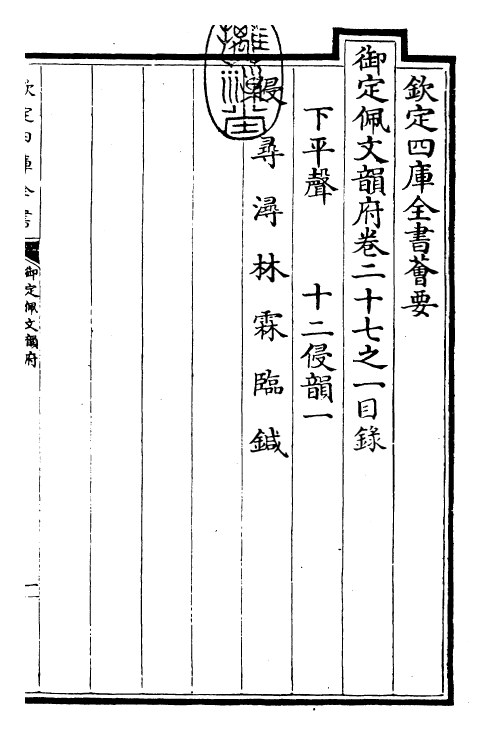 欽定四庫全書薈要
御定佩文韻府卷二十七之一目錄
下平聲　十二侵韻一
侵尋潯林霖臨鍼
欽定四庫全書
御定佩文韻府
一